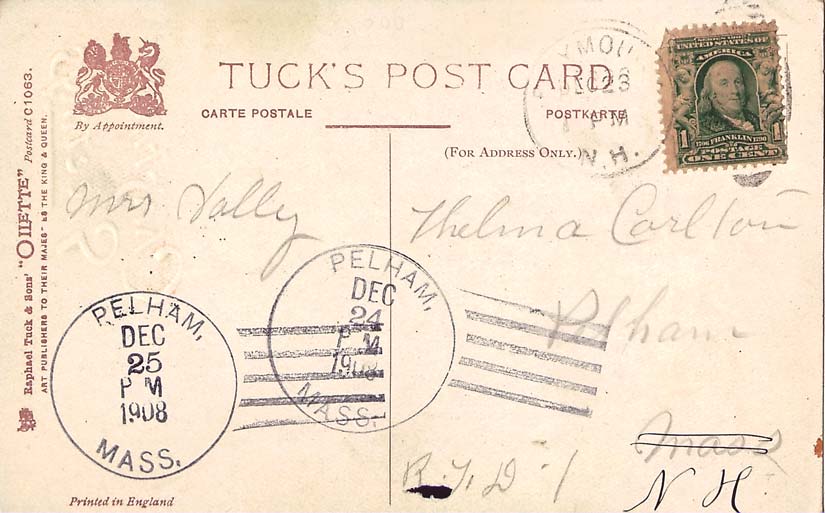 TUCK'S POST CARD
CARTE POSTALE
POSTKARTE
(FOR ADDRESS ONLY.)
By Appointment.
Raphael Tuck & Sons' "OILETTE" Postcard C1063.
ART PUBLISHERS TO THEIR MAJES^s TS THE KING & QUEEN.
YMOU
DEC 23
PM
N.H.
UNITED STATES OF
AMERICA
1 1
FRANKLIN
POSTAGE
ONE CENT
Mrs
Thelma Carlton
Pelham
Mass
N H
R.F.D. 1
PELHAM,
DEC
24
PM
1908
MASS.
PELHAM,
DEC
25
PM
1908
MASS.
Printed in England